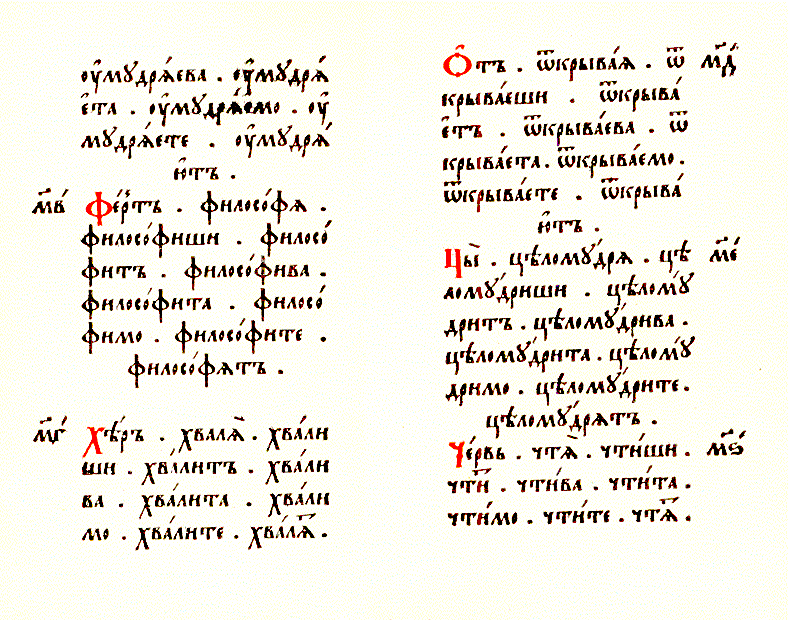 оу҆мꙋдрѧ́ева . оу҆мꙋдрѧ́
е҆та . оу҆мꙋдрѧ́емо . оу҆
мꙋдрѧ́ете . оу҆мꙋдрѧ́
ю҆тъ .
м҃в Фе́ртъ . филосо́фѧ .
филосо́фиши . филосо́
фитъ . филосо́фива .
филосо́фита . филосо́
фимо . филосо́фите .
филосо́фѧтъ .
м҃г Хѣ́ръ . хвалѧ̀ . хва́ли
ши . хва́литъ . хва́ли
ва . хва́лита . хва́ли
мо . хва́лите . хва́лѧ︮т︯ .
Ѻ҆тъ . ѿкрыва́ѧ . ѿ м҃д
крыва́еши . ѿкрыва́
е҆тъ . ѿкрыва́ева . ѿ
крыва́ета . ѿкрыва́емо .
ѿкрыва́ете . ѿкрыва́
ю҆тъ .
Цы̀ . цѣломꙋ́дрѧ . цѣ м҃е
ломꙋ́дриши . цѣломꙋ́
дритъ . цѣломꙋ́дрива .
цѣломꙋ́дрита . цѣломꙋ́
дримо . цѣломꙋ́дрите .
цѣломꙋ́дрѧтъ .
Че́рвь . чтѧ̀ . чти́ши . м҃ѕ
чти́ⷮ . чти́ва . чти́та .
чти́мо . чти́те . чтѧ́ⷮ .